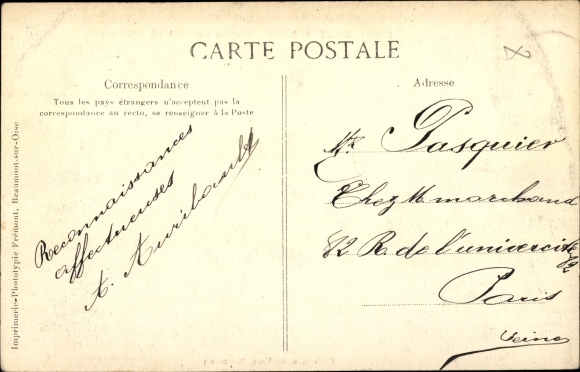 CARTE POSTALE
Correspondance
Tous les pays étrangers n'acceptent pas la
correspondance au recto, se renseigner à la Poste
Reconnaissances
affectueuses
A.
Adresse
Pasquier
Chez M marchand
82 R. de l'univercité
82
Paris
Seine
Imprimerie-Phototypie Frémont, Beaumont-sur-Oise